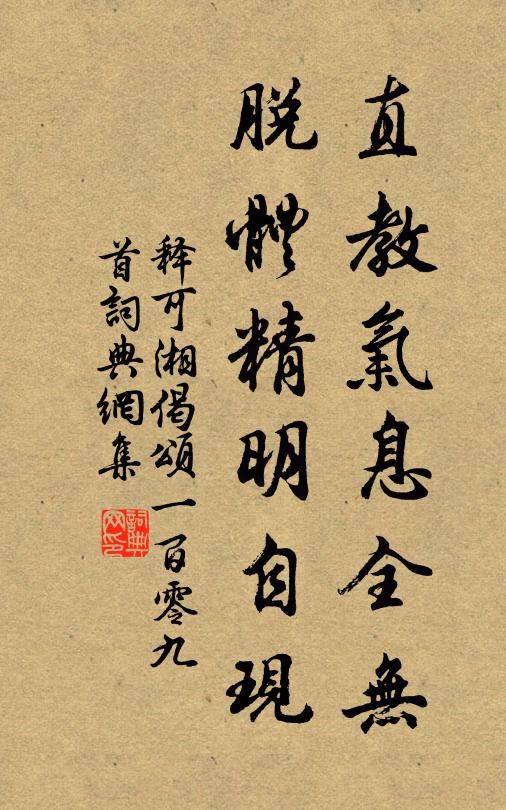 直教氣息全無
脫體精明自現
釋可湘偈頌一百零九
首詞典網集
詞典
网印